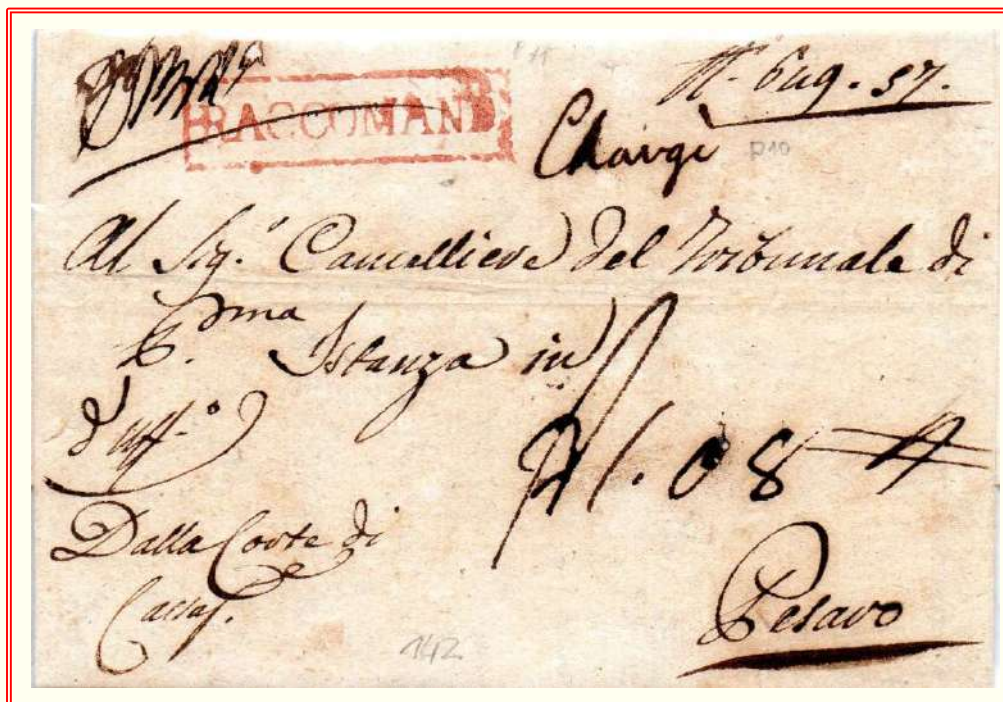 RACCOMAND
57.
Chargè
p10
Al Sig.r Cancelliere del Tribunale di
P.ma Istanza in
d'uff.o
08
Dalla Corte di
Cassaz.
Pesaro
142